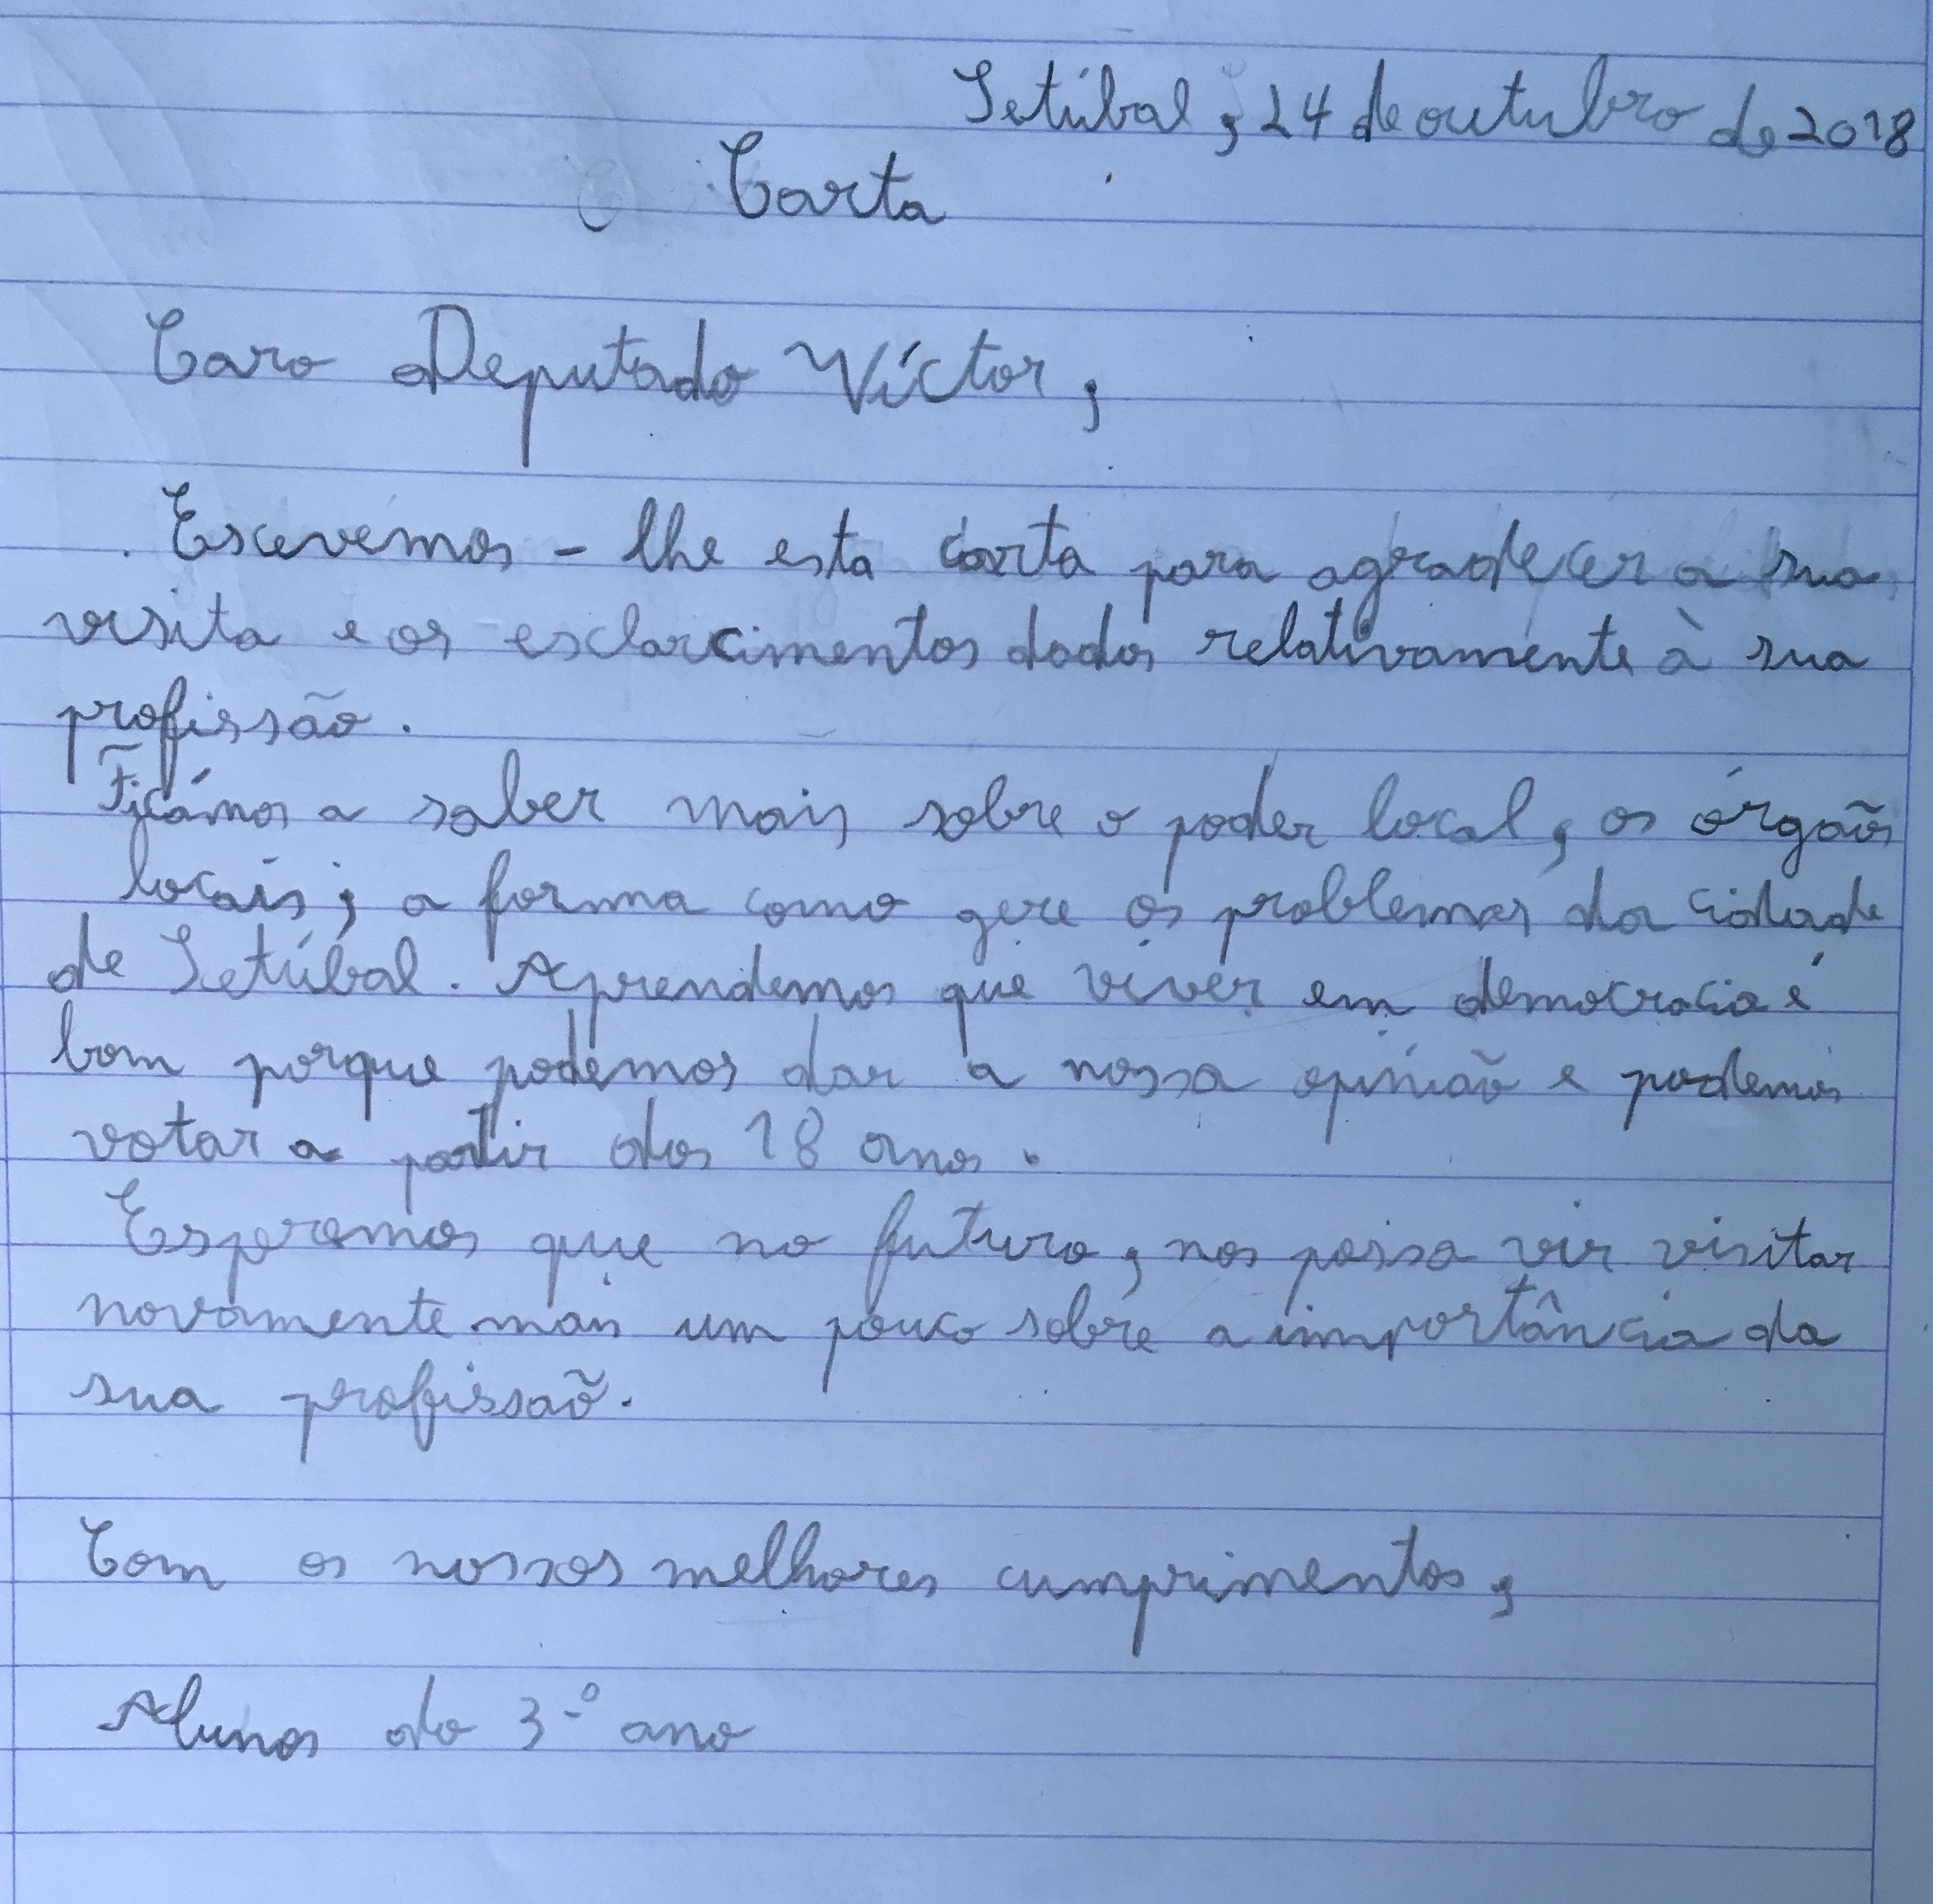 Setúbal, 24 de outubro de 2018
Carta
Caro Deputado Víctor,
Escevemos-lhe esta carta para agradecer a sua
visita e os esclarcimentos dados relativamente à sua
profissão.
Ficámos a saber mais sobre o poder local, os órgaõs
locais, a forma como gere os problemas da cidade
de Setúbal. Aprendemos que viver em democracia é
bom porque podemos dar a nossa opiniaõ e podemos
votar a partir dos 18 anos.
Esperamos que no futuro, nos possa vir visitar
novamente mais um pouco sobre a importância da
sua profissaõ.
Com os nossos melhores cumprimentos,
Alunos do 3.º ano